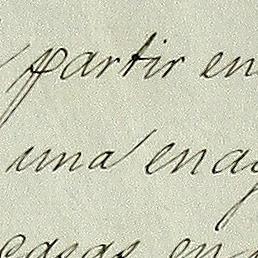 partir en
una enag
casas en